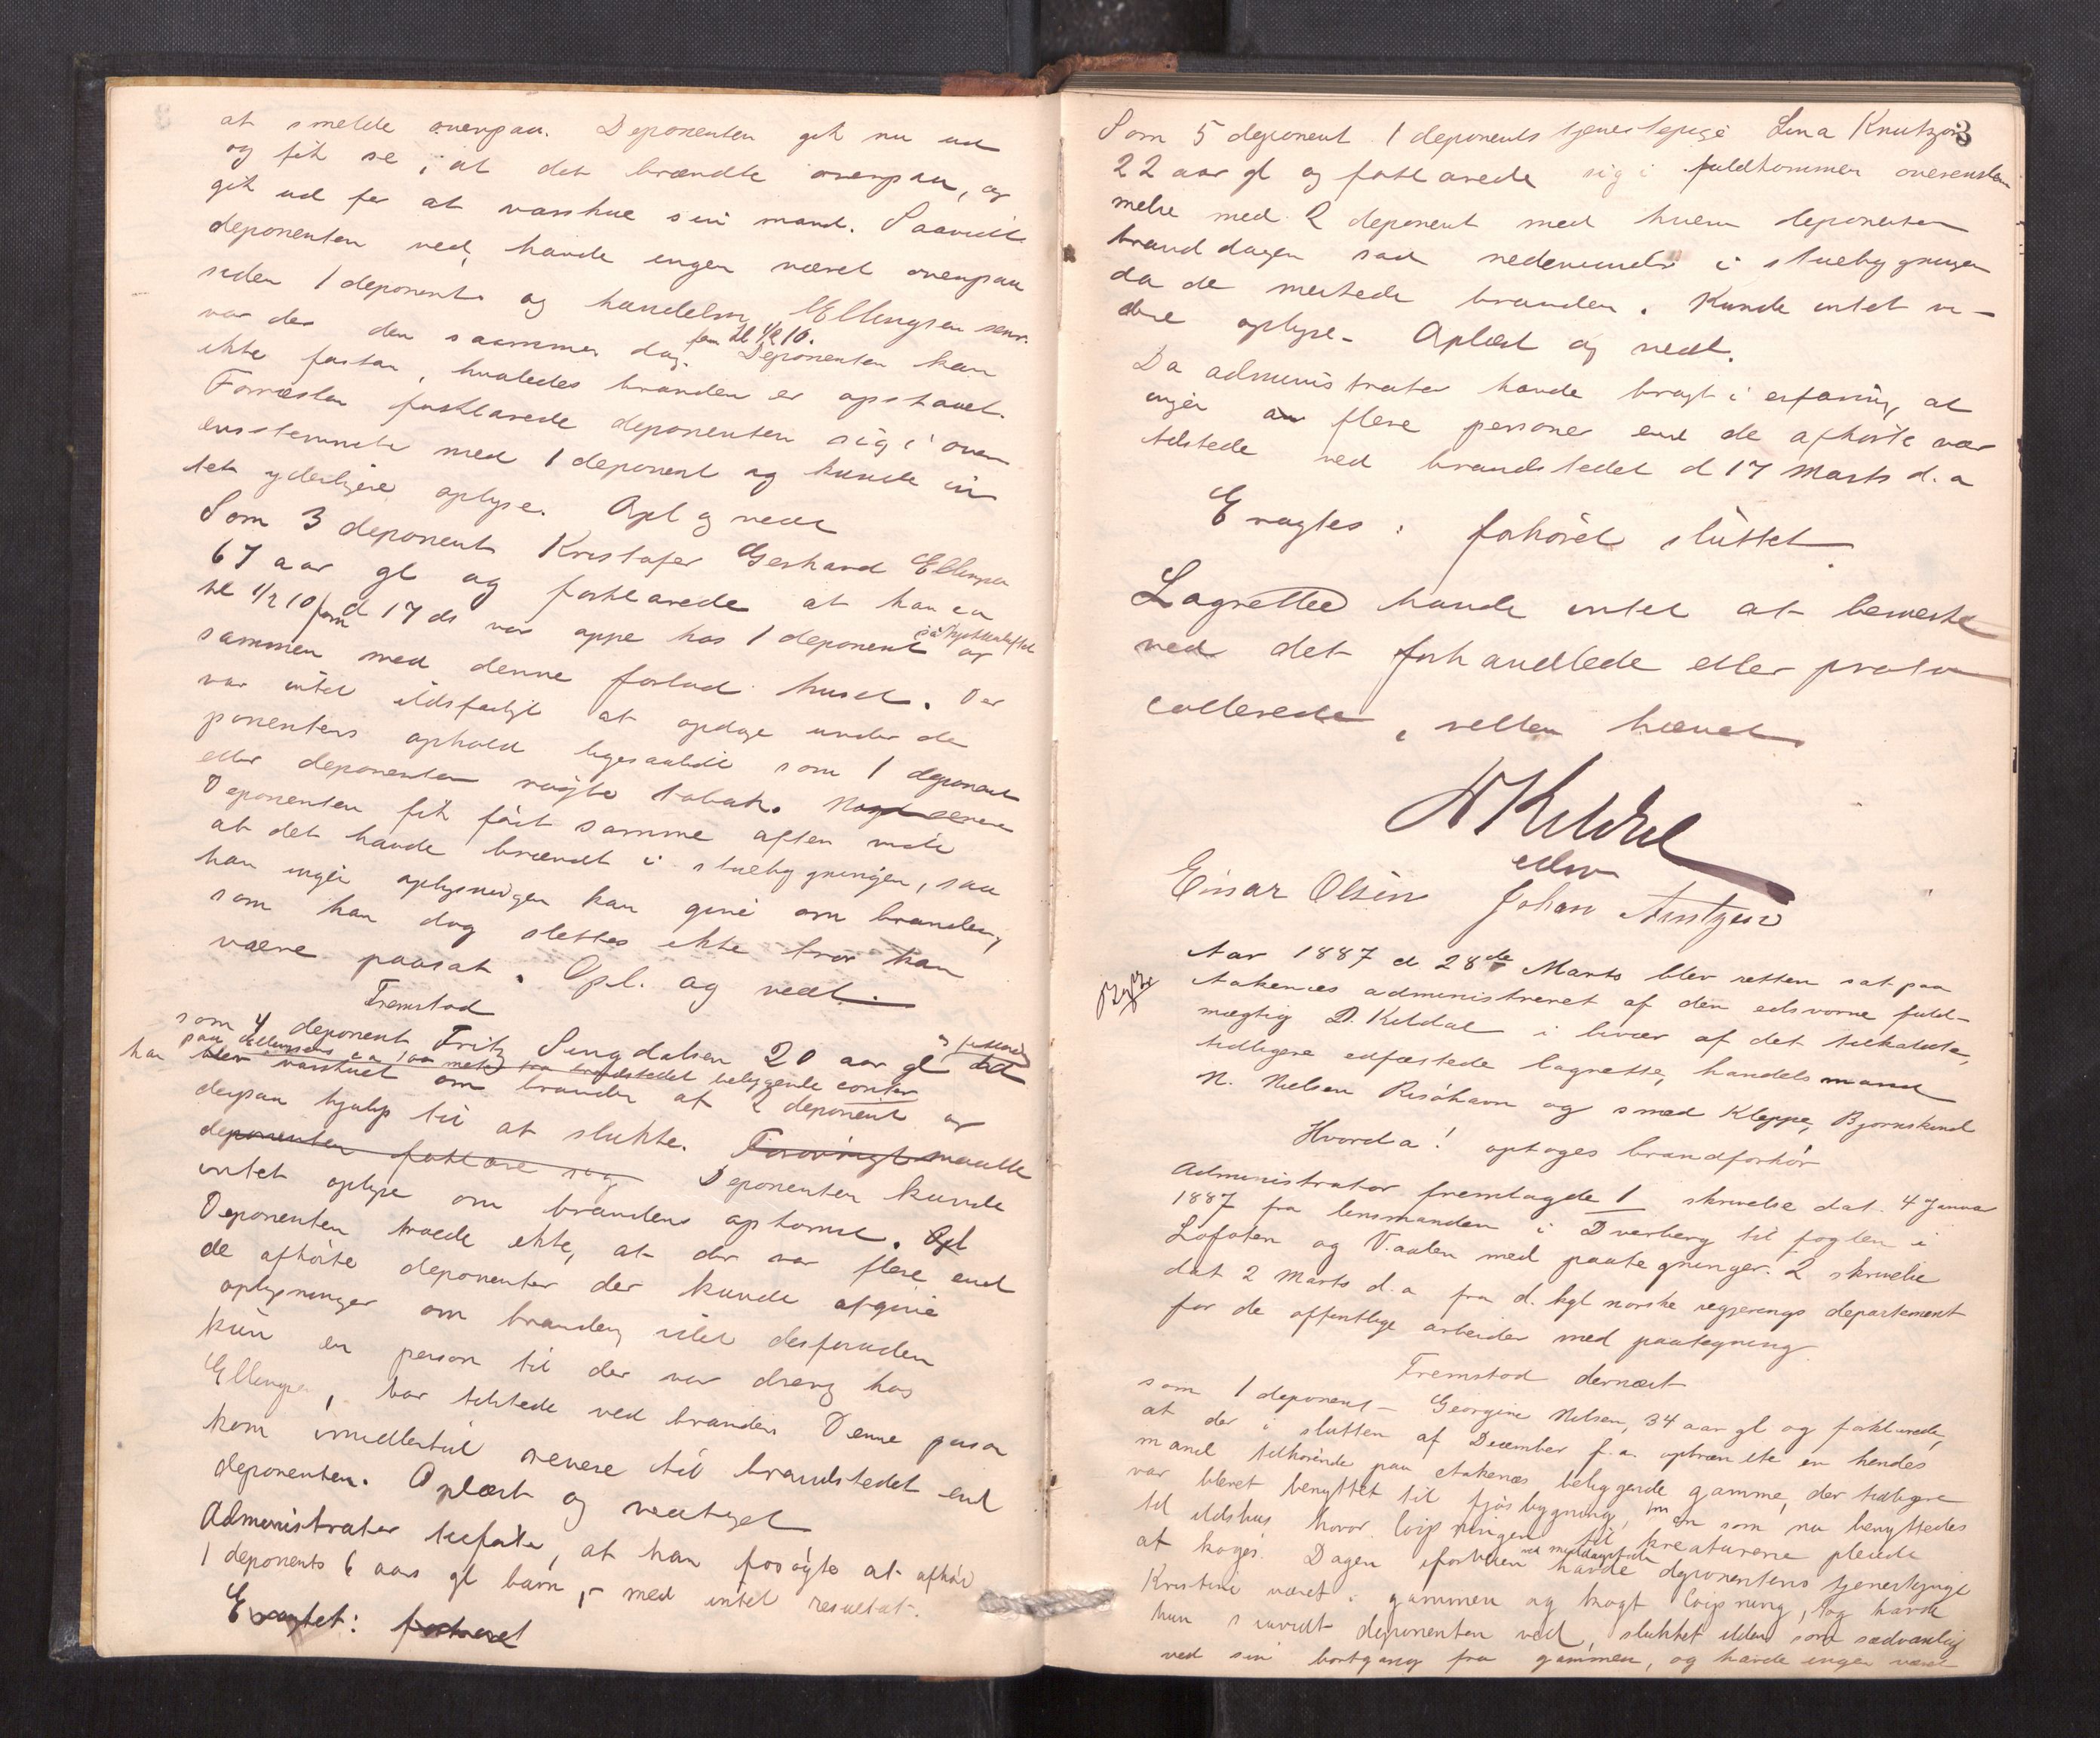 at smelde ovenpaa. Deponenten gik nu ud
og fik se, at det brændte ovenpaa, og
gik ud for at varskue sin mand. Saavidt
deponenten ved, havde ingen været ovenpaa
siden 1 deponent og handelsm. Ellingsen senr.
var der den sammen dag. fm kl 1/2 10. Deponenten kan
ikke forstaa, hvaledes branden er opstaaet.
Forresten forklarede deponenten sig i over
ensstemmelse med 1 deponent og kunde in
tet yderligere oplyse. Opl og vedt
Som 3 deponent Kristofer Gerhard Ellingsen
67 aar gl og forklarede at han ca
kl 1/2 10 fm d 17 ds var oppe hos 1 deponent og
sammen med denne forlod huset. Der
var intet ildsfarligt at opdage under de
ponentens ophold ligesaalidt som 1 deponent
eller deponenten røgte tobak.
Deponenten fik først samme aften vide
at det havde brændt i stuebygningen, saa
han ingen oplysninger kan give om branden,
som han dog slettes ikke tror kan
være paasat. Opl. og vedt.
Fremstod
som 4 deponent Fritz Sengdalsen 20 aar gl
han blev varskuet om branden af 2 deponent og
derpaa hjalp til at slukke. Forøvrigt maatte
deponenten forklare sig Deponenten kunde
intet oplyse om brandens opkomst. Opl
Deponenten troede ikke, at der var flere end
de afhørte deponenter der kunde afgive
oplysninger om branden, idet desforuden
kun en person til der var dreng hos
Ellingsen, var tilstede ved branden. Denne person
kom imidlertid senere til brandstedet end
deponenten. Oplæst og vedtaget
Administrator tilføiede, at han forsøgte at afhøre
1 deponents 6 aars gl barn, - med intet resultat.
Eragtet: forhøret
3
Som 5 deponent 1 deponents tjenestepige Lina Knutzon
22 aar gl og forklarede sig i fuldkommen overensstem
melse med 2 deponent med hvem deponenten
branddagen sad nedenunder i stuebygningen
da de merkede branden. Kunde intet vi-
dere oplyse. Oplæst og vedt.
Da administrator havde bragt i erfaring, at
ingen flere personer end de afhørte var
tilstede ved brandstedet d 17 Marts d. a
Eragtes: forhøret sluttet
Lagrettet havde intet at bemerke
ved det forhandlede eller proto
collerede, retten hævet
D Kildal
edsv
Einar Olsen Johan Arntzen
Aar 1887 d 28de Marts blev retten sat paa
Aakenes administreret af den edsvorne fuld-
mægtig D. Kildal i bivær af det tilkaldte,
tidligere edfæstede lagrette, handelsmand
N. Nielsen Risøhavn og smed Kleppe, Bjørnskind
Hvorda! optoges brandforhør
Administrator fremlagde 1 skrivelse dat. 4 Januar
1887 fra lensmanden i Dverberg til fogden i
Lofoten og V.aalen med paategninger. 2 skrivelse
dat 2 Marts d. a fra d. kgl norske regjerings departement
for de offentlige arbeider med paategning
Fremstod dernæst
som 1 deponent - Georgine Nilsen, 34 aar gl og forklarede,
at der i slutten af December f. a. opbrændte en hendes
mand tilhørende paa Aakenæs beliggende gamme, der tidligere
var blevet benyttet til fjøsbygning, men som nu benyttedes
til ildshus hvor løipningen til kreaturene pleiede
at koges. Dagen iforveien ved middagstide havde deponentens tjenestepige
Kristine været i gammen og kogt løipning, dog havde
hun saavidt deponenten ved, slukket ilden som sædvanlig
ved sin bortgang fra gammen, og havde ingen været